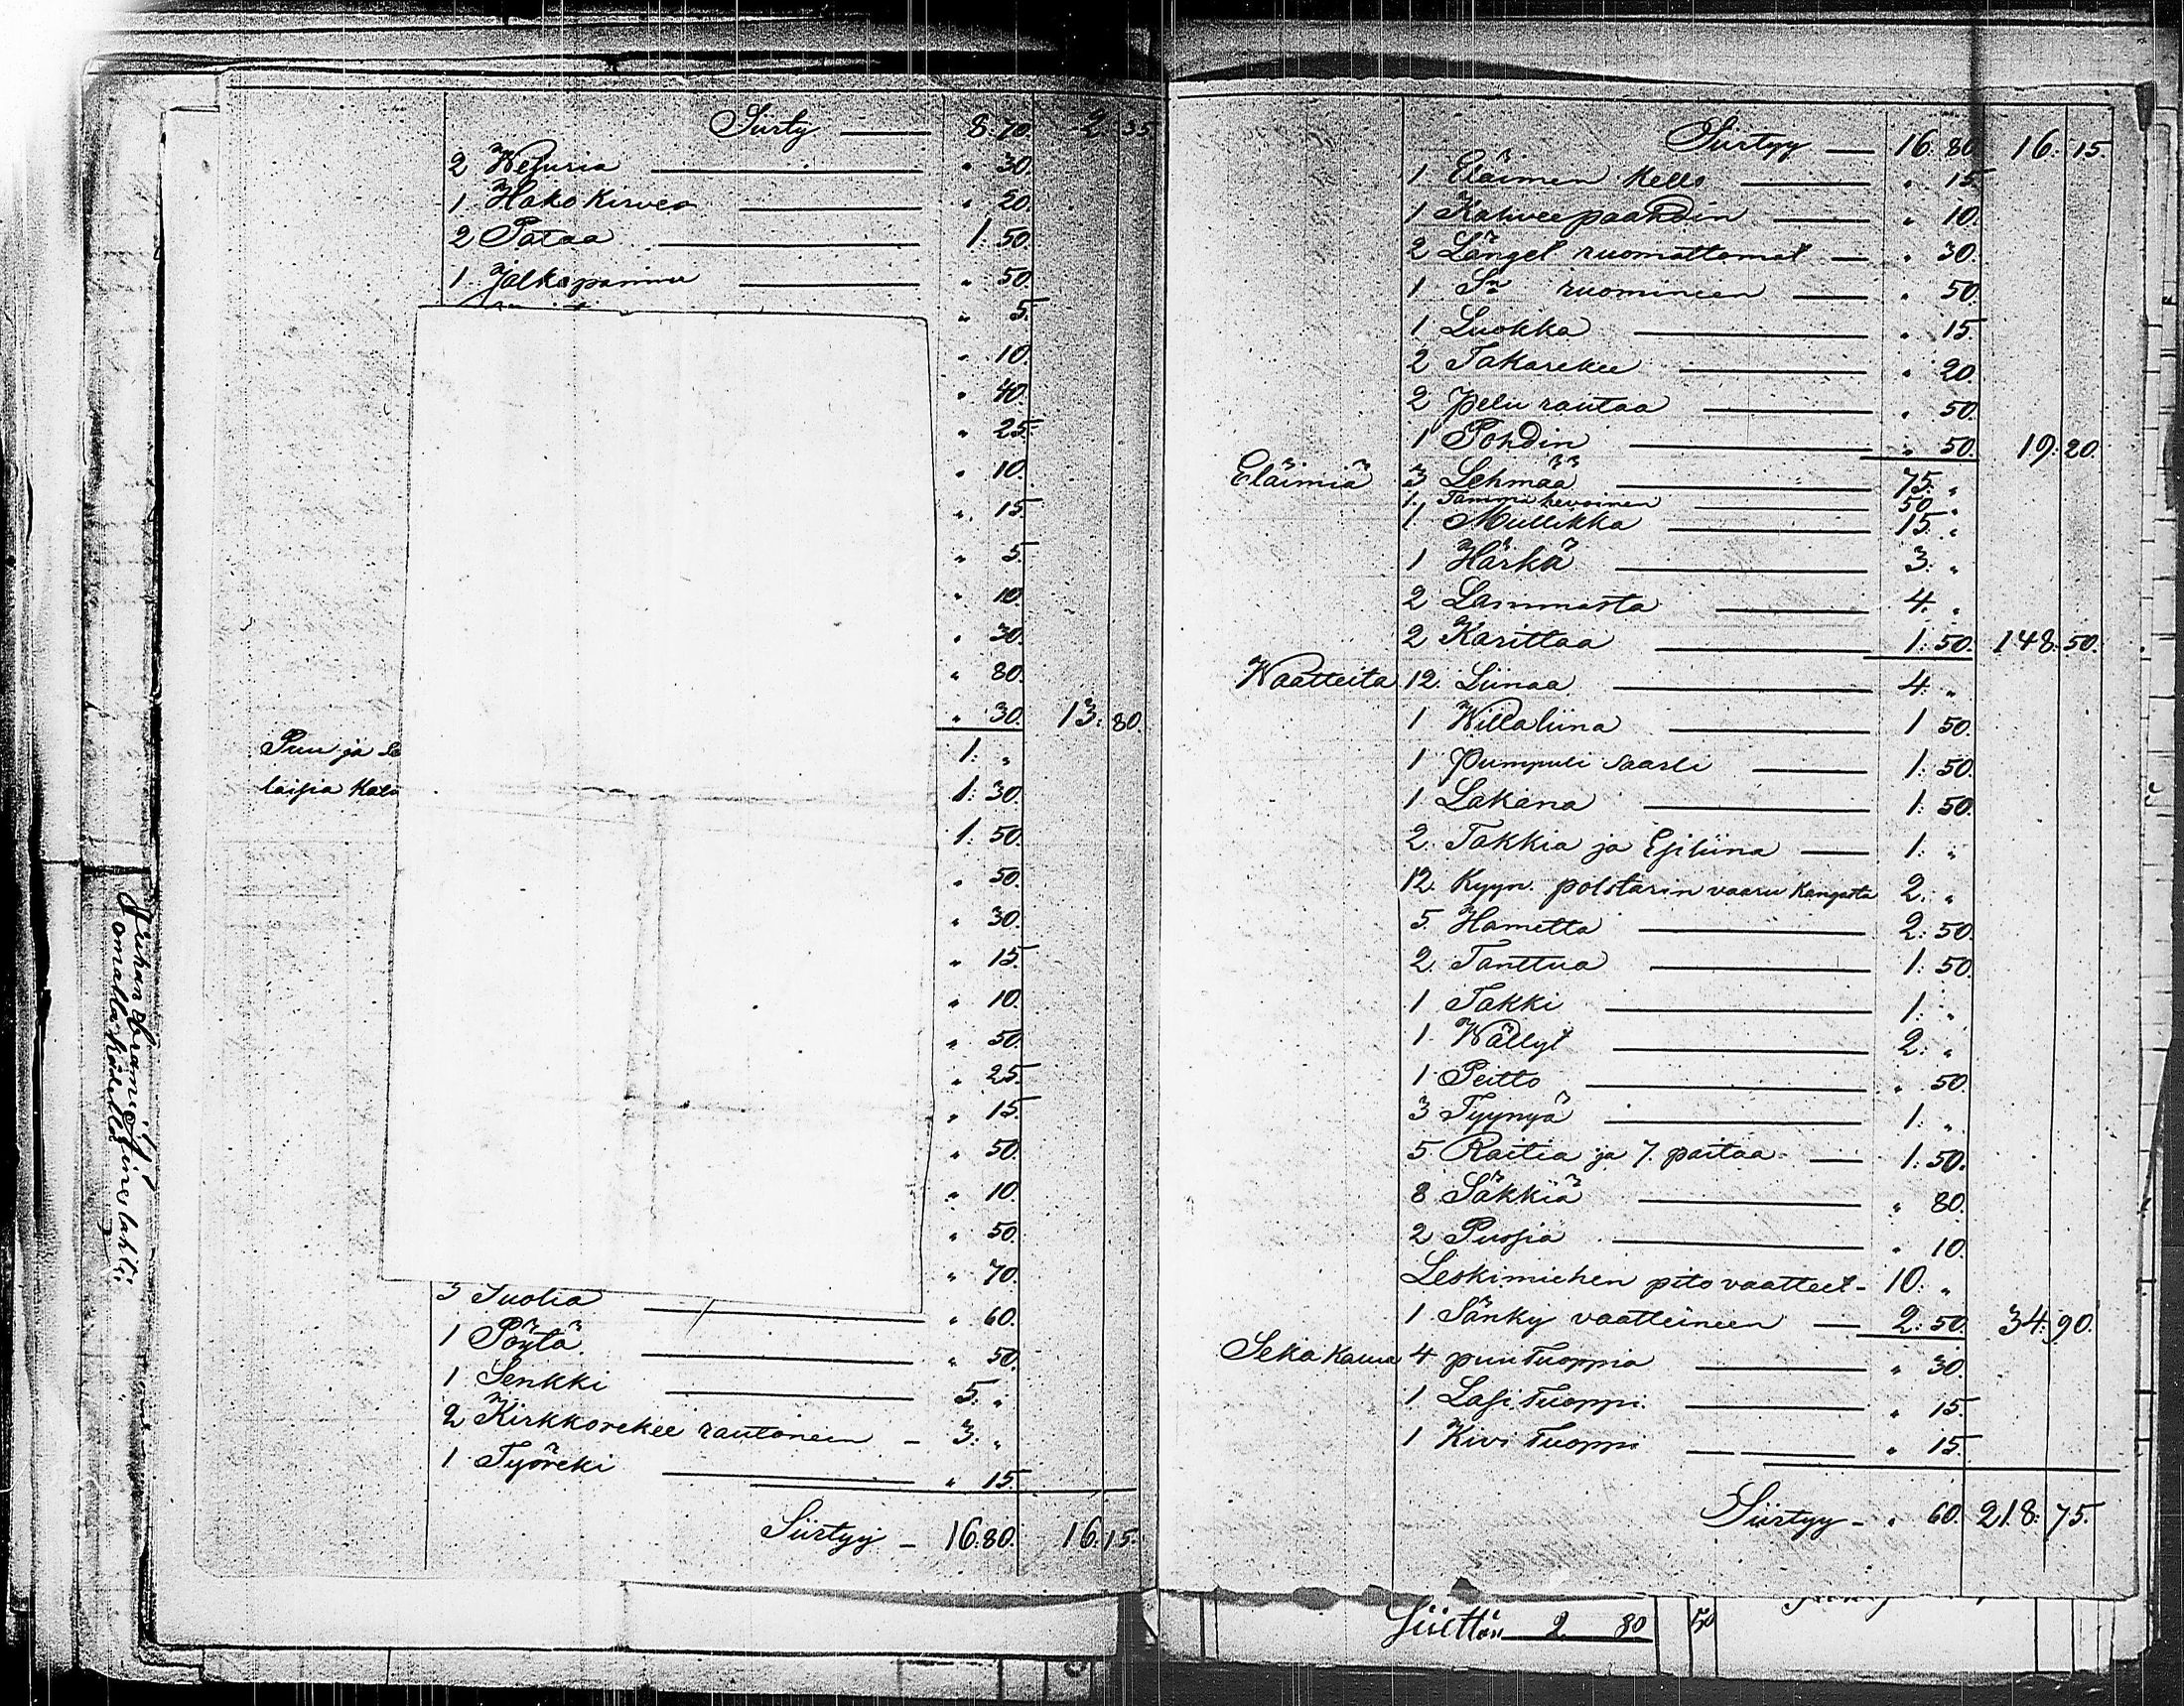 Siirty — 8. 70. 2 35
2 Wesuria — " 30.
1 Hako Kirves — " 20.
2 Pataa — 1: 50.
1 jalkapannu — " 50.
" 5.
" 10.
" 40.
" 25.
" 10.
" 15.
" 5.
" 10.
" 30.
" 80.
" 30. 13: 80.
Puu ja 1: "
laisia 1: 30.
1: 50.
" 50.
" 30.
" 15.
" 10.
" 50.
" 25.
" 15.
" 50.
" 10.
" 50.
" 70.
3 Tuolia — " 60.
1 Pöytä — " 50.
1 Senkki — 5: "
2 Kirkkorekee rautoneen — 3: "
1 Työreki — " 15.
Siirtyy — 16: 80. 16: 15.
Juhan
omalla kädellä
Siirtyy — 16: 80 16: 15.
1 Eläimen Kello — " 15
1 Kahveepaahdin — " 10.
2 Länget ruomattomat — " 30.
1 Sn ruomineen — " 50.
1 Luokka — " 15
2 Takarekee — " 20.
2 pelu rautaa — " 50.
1 Pohdin — " 50. 19: 20.
Eläimiä 3 Lehmää — 75: "
1. Tamma hevoinen — 50 "
1 Mullikka — 15: "
1 Härkä — 3: "
2 Lammasta — 4. "
2 Karittaa — 1: 50. 148: 50.
Waatteita 12. Liinaa — 4. "
1 Willaliina — 1 50.
1 Pumpuli saali — 1: 50.
1 Lakana — 1: 50.
2. Takkia ja Esiliina — 1: "
12. Kyyn. polstarin vaaru Kangasta 2: "
5. Hametta — 2: 50.
2. Tanttua — 1: 50.
1 Takki — 1: "
1. Wällyt — 2: "
1 Peitto — " 50.
3 Tyynyä — 1: "
5. Raitia ja 7. paitaa — 1: 50.
8 Säkkiä — " 80.
2 Pussia — " 10.
Leskimiehen pito vaatteet — 10: "
1 Sänky vaatteineen — 2: 50. 34: 90.
Seka Kaluja 4 puu Tuoppia — " 30.
1 Lasi Tuoppi — " 15.
1 Kivi Tuoppi — " 15.
Siirtyy — " 60. 218: 75.
2 80 50